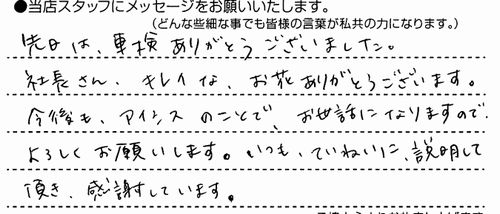 ●当店スタッフにメッセージをお願いいたします。
(どんな些細な事でも皆様の言葉が私共の力になります。)
先日は、車検ありがとうございました。
社長さん、キレイな、お花ありがとうございます。
今後も、アイシスのことで、お世話になりますので
よろしくお願いします。いつも、ていねいに、説明して
頂き、感謝しています。